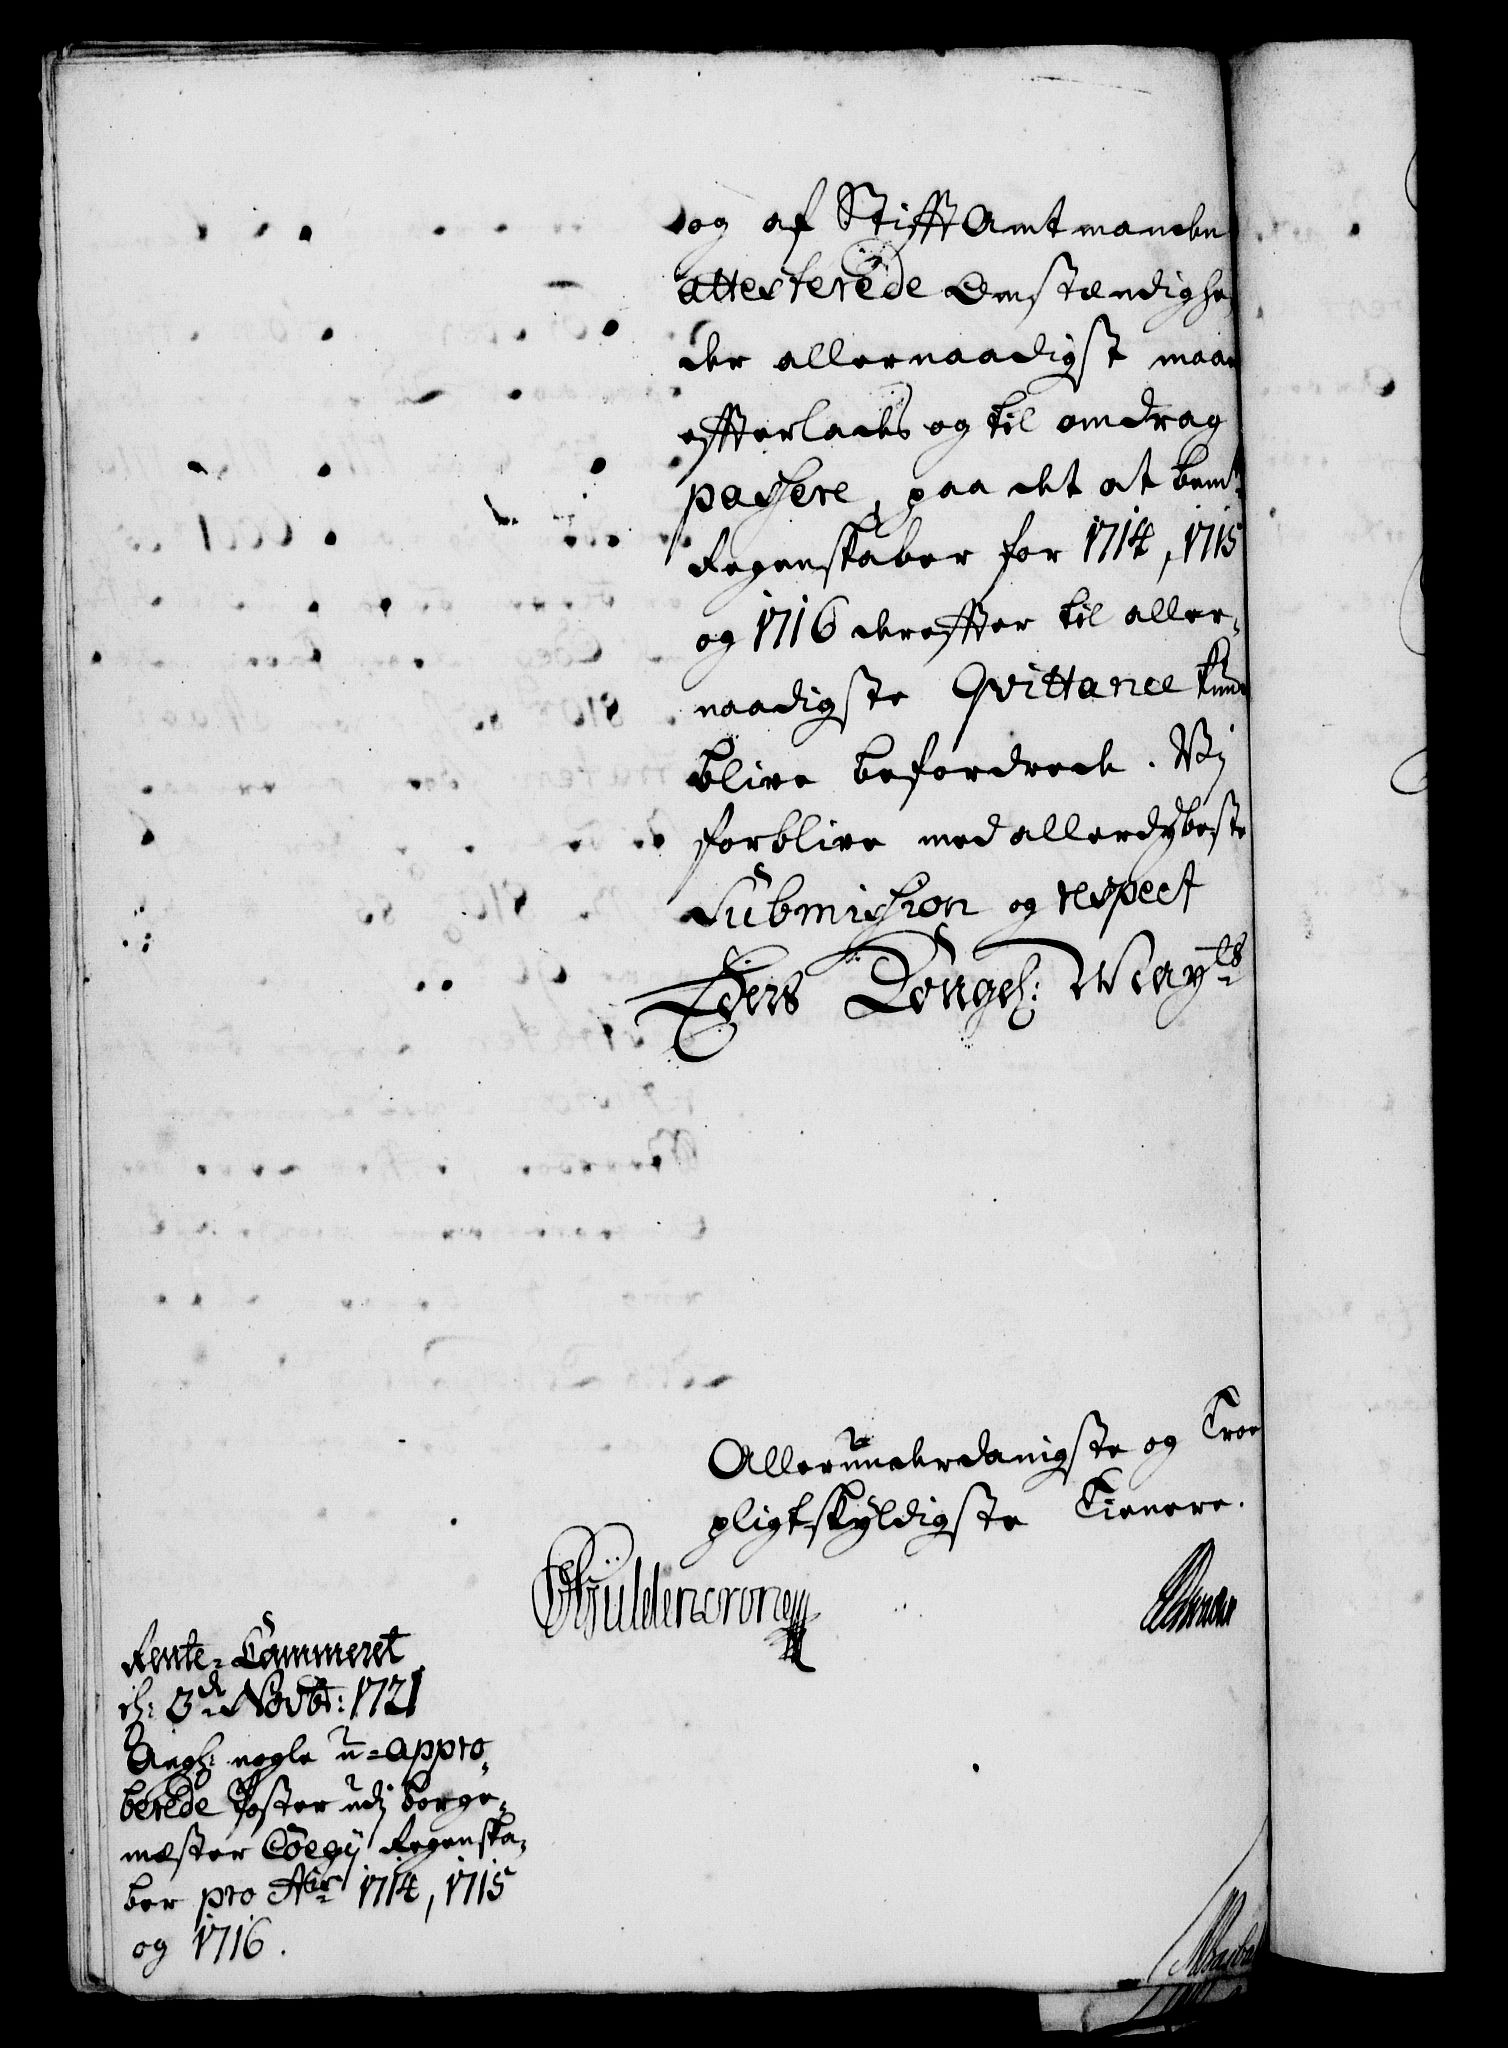 og af Stifft Amtmanden
attesterede Omstændighe
der allernaadigst maa
efterlades og til omdrag
passere, paa det at bemte
Regenskaber for 1714, 1715
og 1716 dereffter til aller-
naadigste Qvittance kunde
blive befordrede. Vj
forblive med allerdybeste
Submission og respect
Eders Kongel: Mayts
Allerunderdanigste og Troe
pligtskyldigste Tienere.
Güldencrone
Rente-Cammeret
d: 3de Novbr: 1721
Angl: nogle u-appro-
berede Poster udj borge-
mester Coegij Regenska-
ber pro Aõ 1714, 1715
og 1716.